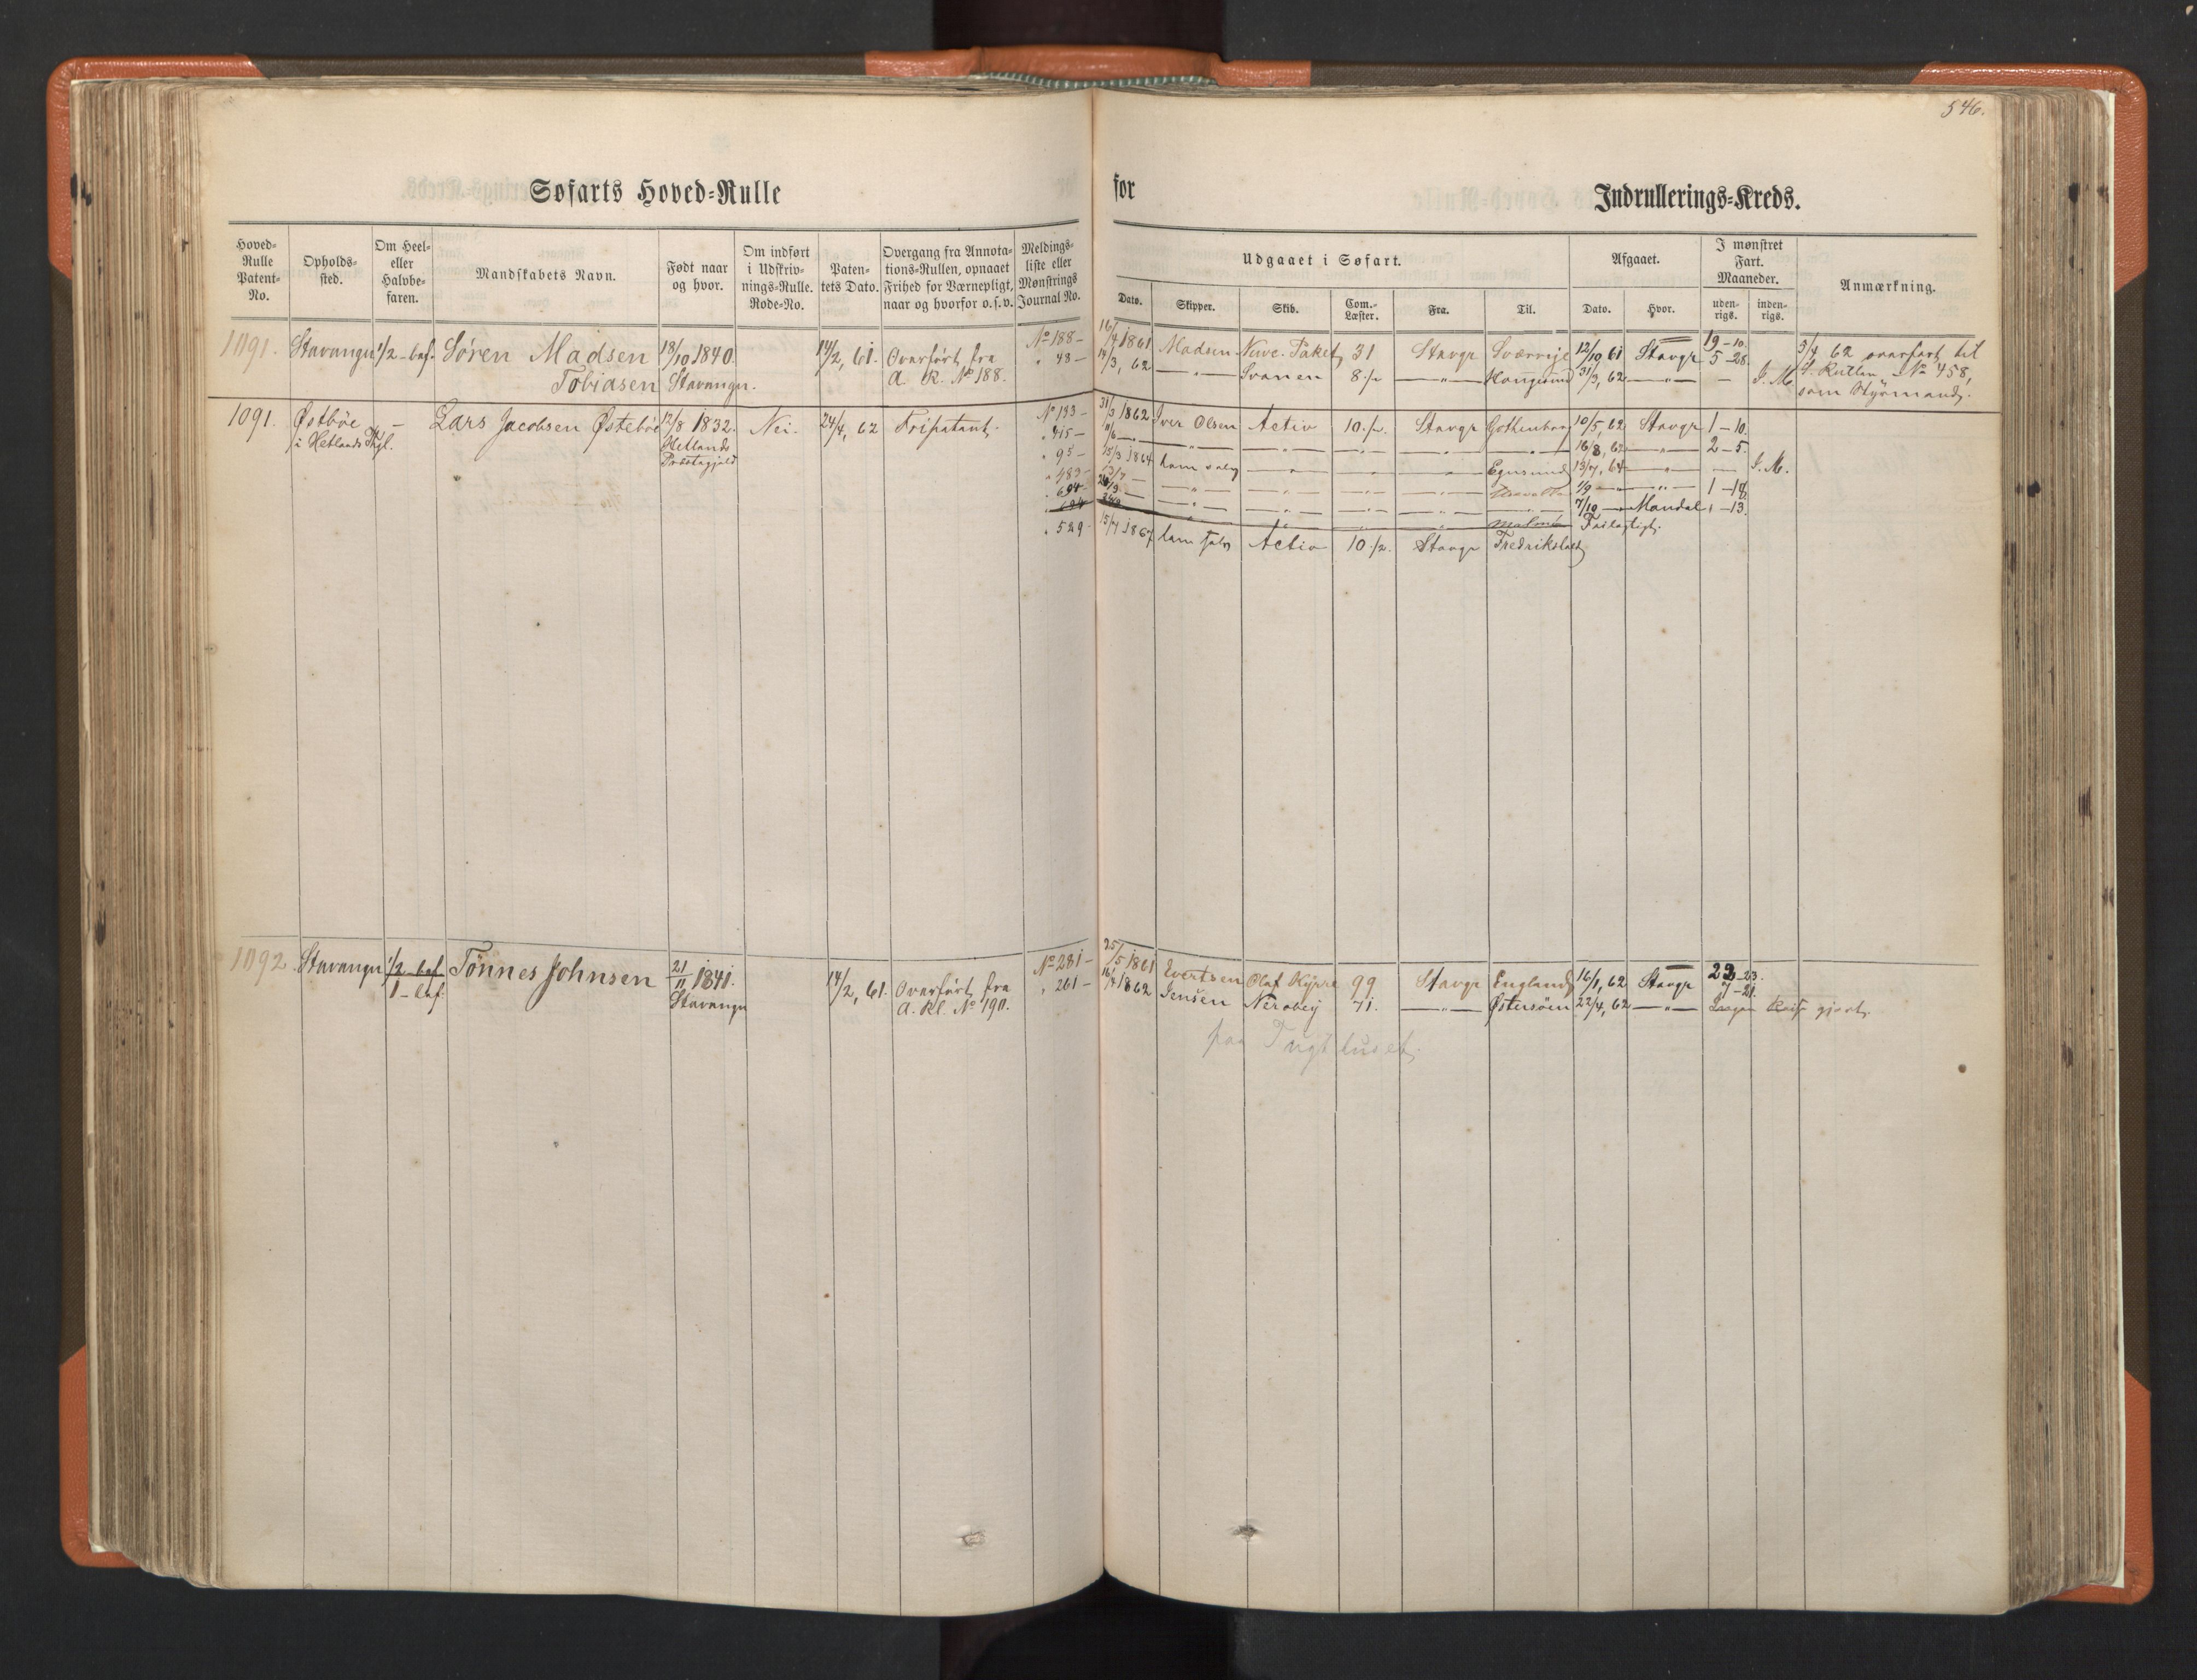 546.
Søfarts Hoved=Rulle for Indrullerings=Kreds.
Hoved=Rulle Patent=No.
Opholds=sted.
Om Heel= eller Halvbe=faren.
Mandskabets Navn.
Født naar og hvor.
Om indført i Udskriv=nings=Rulle. Rode=No.
Paten=tets Dato.
Overgang fra Annota=tions=Rullen, opnaaet Frihed for Værnepligt, naar og hvorfor o.s.v.
Meldings=liste eller Mønstrings Journal No.
Udgaaet i Søfart.
Dato. Skipper. Skib. Com.=Læster. Fra. Til.
Afgaaet.
Dato. Hvor.
I mønstret Fart. Maaneder.
uden=rigs. inden=rigs.
Anmærkning.
1091. Stavanger 1/2-bef. Søren Madsen 18/10 1840. 14/2, 61. Overført fra No 188- 16/4 1861 Madsen 31 Stavgr Sverrige 12/10 61 Stavgr 19-10. 3/4 62 overført til
Tobiasen Stavanger. A. R. No 188. " 48- 14/3, 62 -"- Svanen 8 1/2 -"- Haugesund 31/3, 62 -"- 5-28. No 458,
som Styrmand.
1091. Østbøe - Lars Jacobsen Østebøe 12/8 1832. Nei. 24/4, 62 Fripatent. No 133- 31/3 1862 Iver Olsen Activ 10 1/2. Stavgr Gothenborg 10/5, 62 Stavgr 1-10.
i Hetlands Hetlands " 415- -"- -"- -"- -"- -"- 16/8, 62 -"- 2-5.
Præstegjeld " 95- 15/3 1864 ham selv -"- -"- -"- Egersund 13/4, 64 -"- - I. M.
" 483- -"- -"- -"- -"- 1/9 -"- 1-18
" 694- -"- -"- -"- -"- 7/10 - Mandal 1-13.
" 694 Malmø Feilagtigt.
" 529- 15/4 1867 ham selv Activ 10 1/2. Stavgr Fredrikshald
1092. Stavanger 1/2-bef Tønnes Johnsen 21/11 1841. 14/2, 61. Overført fra No 281- 25/5 1861 Evertsen Olaf Kyrre 99 Stavgr England 16/1, 62 Stavgr 23-23.
1-bef. Stavanger A. Rl. No 190. " 261- 16/4 1862 Jensen 71. -"- Østersøen 22/4, 62 -"- Ingen Reise gjort.
paa Tugthuset.